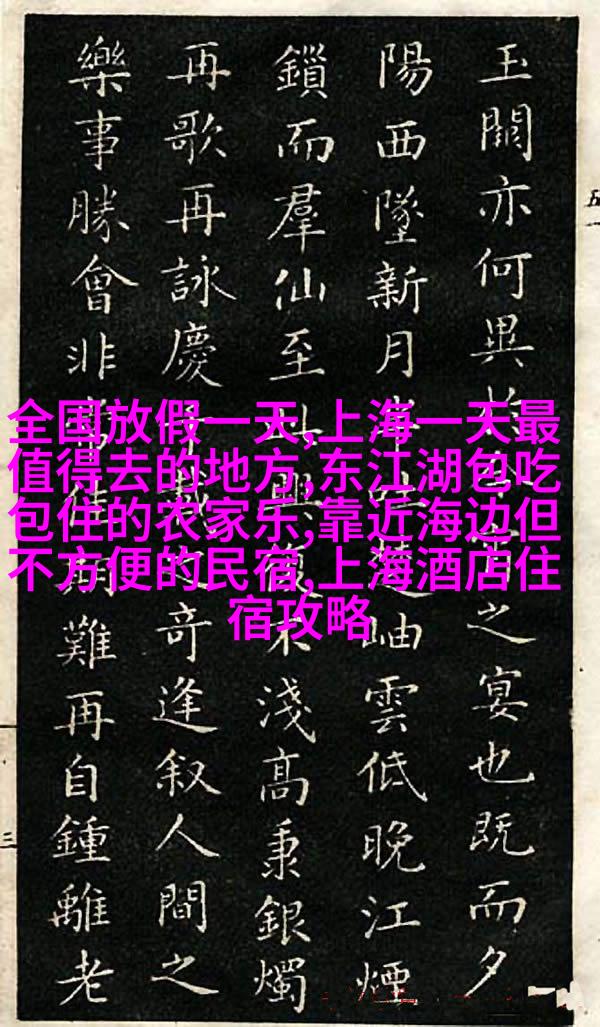 玉闕亦何異之宴也既而夕
陽西墜新月岫雲低晚江煙
鎖而羣仙至興復不淺高秉銀燭
再歌再詠慶千載之奇逢叙人間之
樂事勝會非常佳期難再自鍾離老
全国放假一天,上海一天最
值得去的地方,东江湖包吃
包住的农家乐,靠近海边但
不方便的民宿,上海酒店住
宿攻略